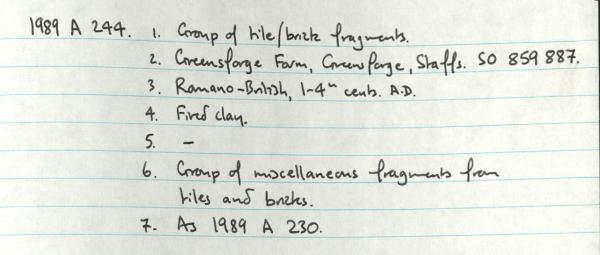 1989 A 244. 1. Group of tile/brick fragments.
2. Greensforge Farm, Greensforge, Staffs. SO 859 887.
3. Romano-British, 1-4th cents. A.D.
4. Fired clay.
5. -
6. Group of miscellaneous fragments from
tiles and bricks.
7. As 1989 A 230.